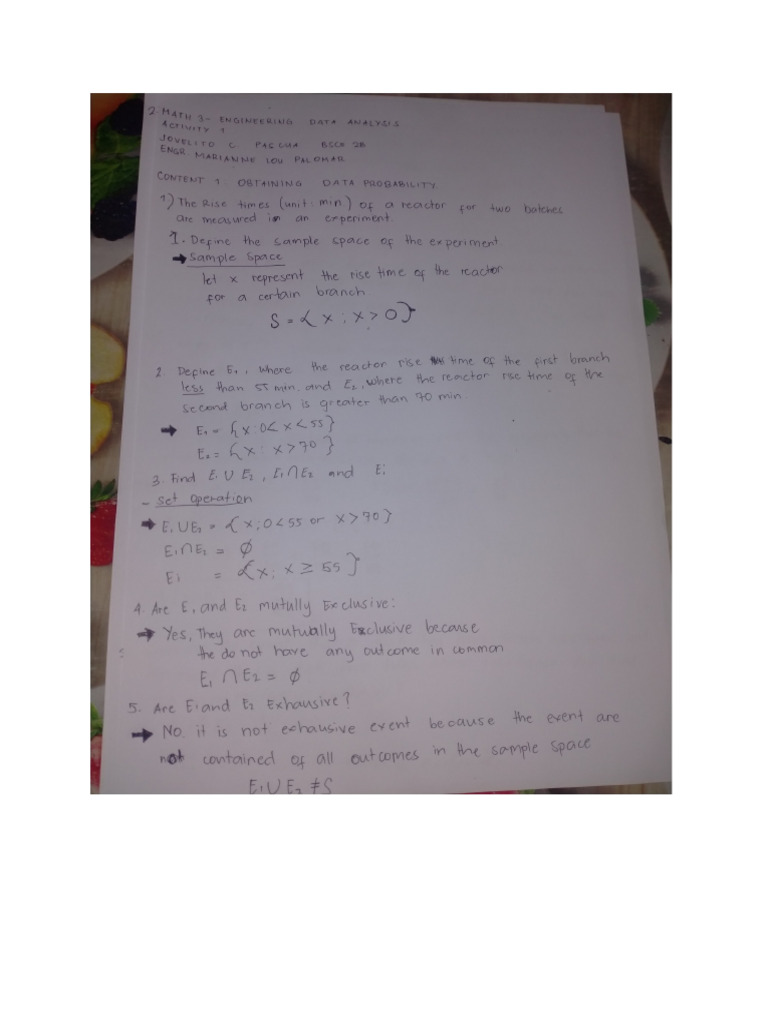 2. MATH 3 - ENGINEERING DATA ANALYSIS
ACTIVITY 1
JOVELITO C PASCUA BSCE 2B
ENGR. MARIANNE LOU PALOMAR
CONTENT 1: OBTAINING DATA PROBABILITY
1) The Rise times (unit: min.) of a reactor for two batches
are measured in an experiment.
1. Define the sample space of the experiment.
→ Sample Space
let x represent the rise time of the reactor
for a certain branch
S = {x ; x > 0}
2. Define E₁, where the reactor rise time of the first branch
less than 55 min. and E₂, where the reactor rise time of the
second branch is greater than 70 min.
→ E₁ = {x : 0 < x < 55}
E₂ = {x : x > 70}
3. Find E₁ ∪ E₂, E₁ ∩ E₂ and E₁
- Set Operation
→ E₁ ∪ E₂ = {x ; 0 < 55 or x > 70}
E₁ ∩ E₂ = ∅
E₁ = {x ; x ≥ 55}
4. Are E₁ and E₂ mutully Exclusive:
→ Yes, They are mutually Exclusive because
the do not have any outcome in common
E₁ ∩ E₂ = ∅
5. Are E₁ and E₂ Exhausive?
→ No. it is not exhausive event because the event are
not contained of all outcomes in the sample space
E₁ ∪ E₂ ≠ S